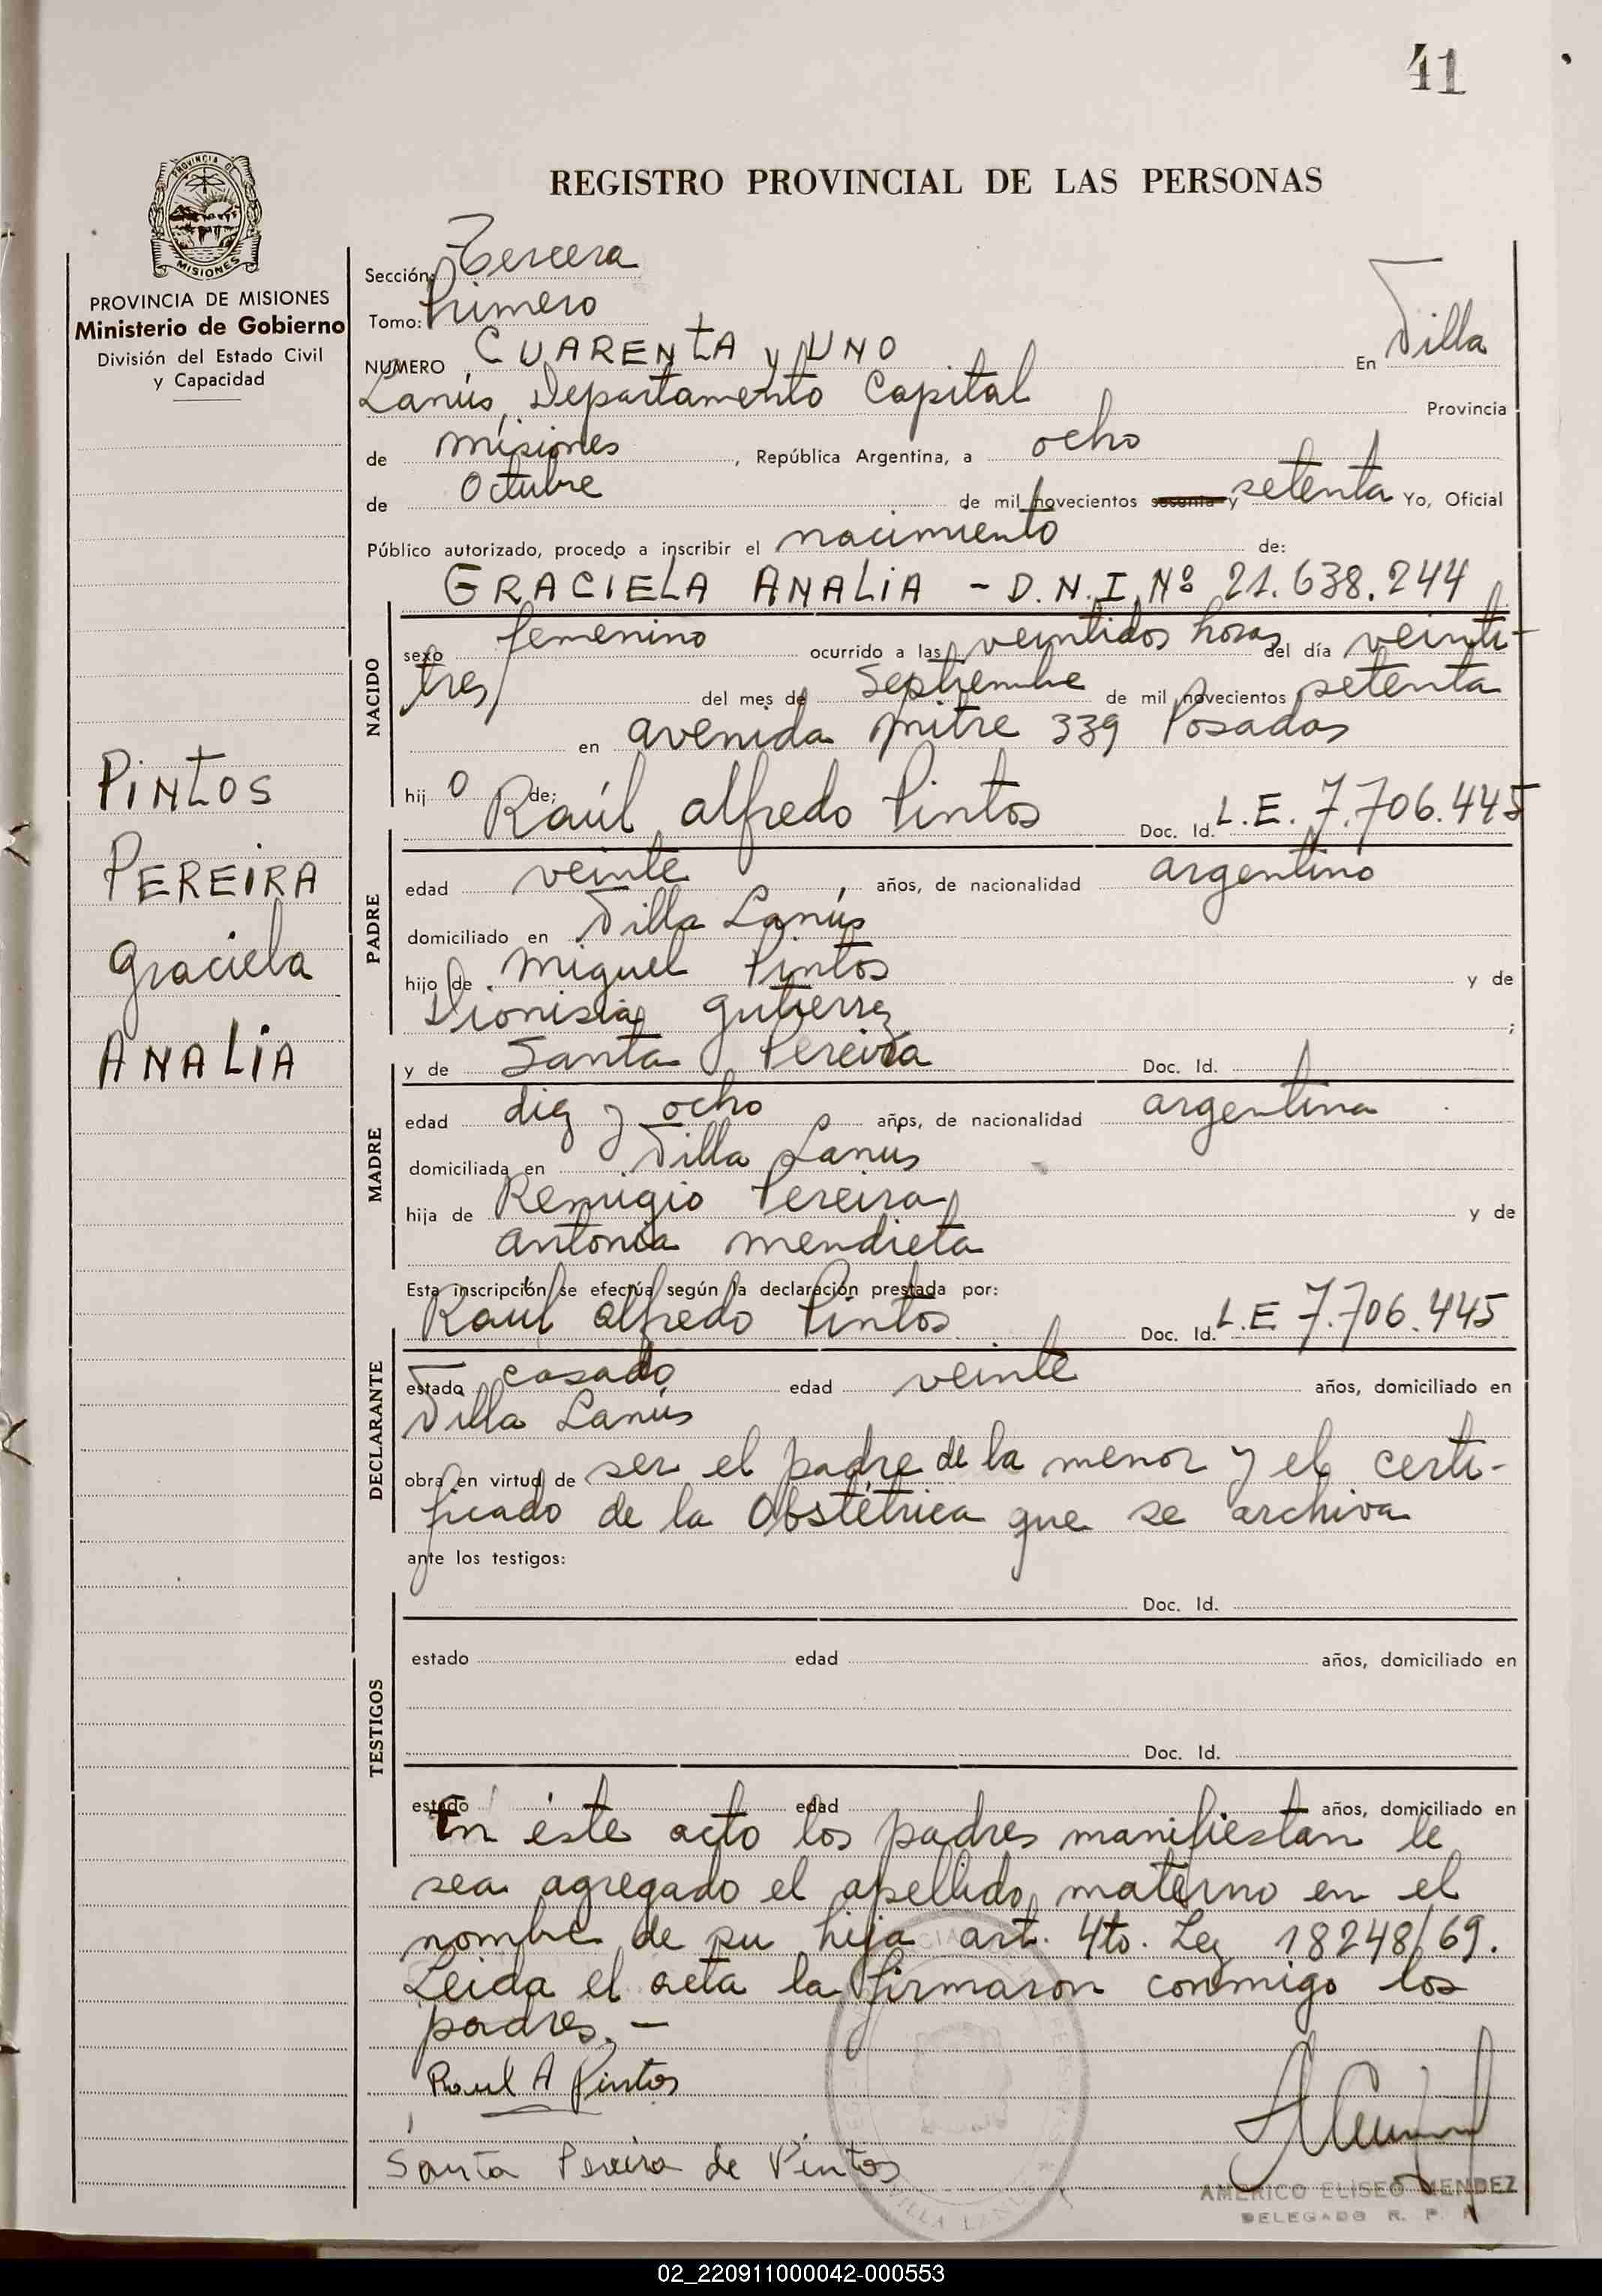 41
REGISTRO PROVINCIAL DE LAS PERSONAS
PROVINCIA DE
MISIONES
PROVINCIA DE MISIONES
Ministerio de Gobierno
División del Estado Civil
y Capacidad
PINTOS
PEREIRA
Graciela
ANALIA
Sección: Tercera
Tomo: Primero
NUMERO CUARENTA y UNO En Villa
Lanús, Departamento Capital Provincia
de misiones, República Argentina, a ocho
de Octubre de mil novecientos sesenta y setenta Yo, Oficial
Público autorizado, procedo a inscribir el nacimiento de:
GRACIELA ANALIA - D.N.I. Nº 21.638.244
NACIDO
sexo femenino ocurrido a las veintidos horas del día veinti-
tres del mes de Septiembre de mil novecientos setenta
en avenida mitre 339 Posadas
hij o de: Raúl alfredo Pintos Doc. Id. L.E. 7.706.445
PADRE
edad veinte, años, de nacionalidad argentino
domiciliado en Villa Lanús
hijo de miguel Pintos y de
Dionisia gutierrez ;
y de Santa Pereira Doc. Id.
MADRE
edad diez y ocho años, de nacionalidad argentina
domiciliada en Villa Lanus
hija de Remigio Pereira y de
antonia mendieta
Esta inscripción se efectúa según la declaración prestada por:
Raul alfredo Pintos Doc. Id. L.E 7.706.445
DECLARANTE
estado casado edad veinte años, domiciliado en
Villa Lanús
obra en virtud de ser el padre de la menor y el certi-
ficado de la Obstétrica que se archiva
ante los testigos:
Doc. Id.
TESTIGOS
estado edad años, domiciliado en
Doc. Id.
estado edad años, domiciliado en
En éste acto los padres manifiestan le
sea agregado el apellido materno en el
nombre de su hija art. 4to. Ley 18248/69.
Leida el acta la firmaron conmigo los
padres. -
Raul A Pintos
Santa Pereira de Pintos
VILLA LANUS
AMERICO ELISEO MENDEZ
DELEGADO R. P. P.
02_220911000042-000553